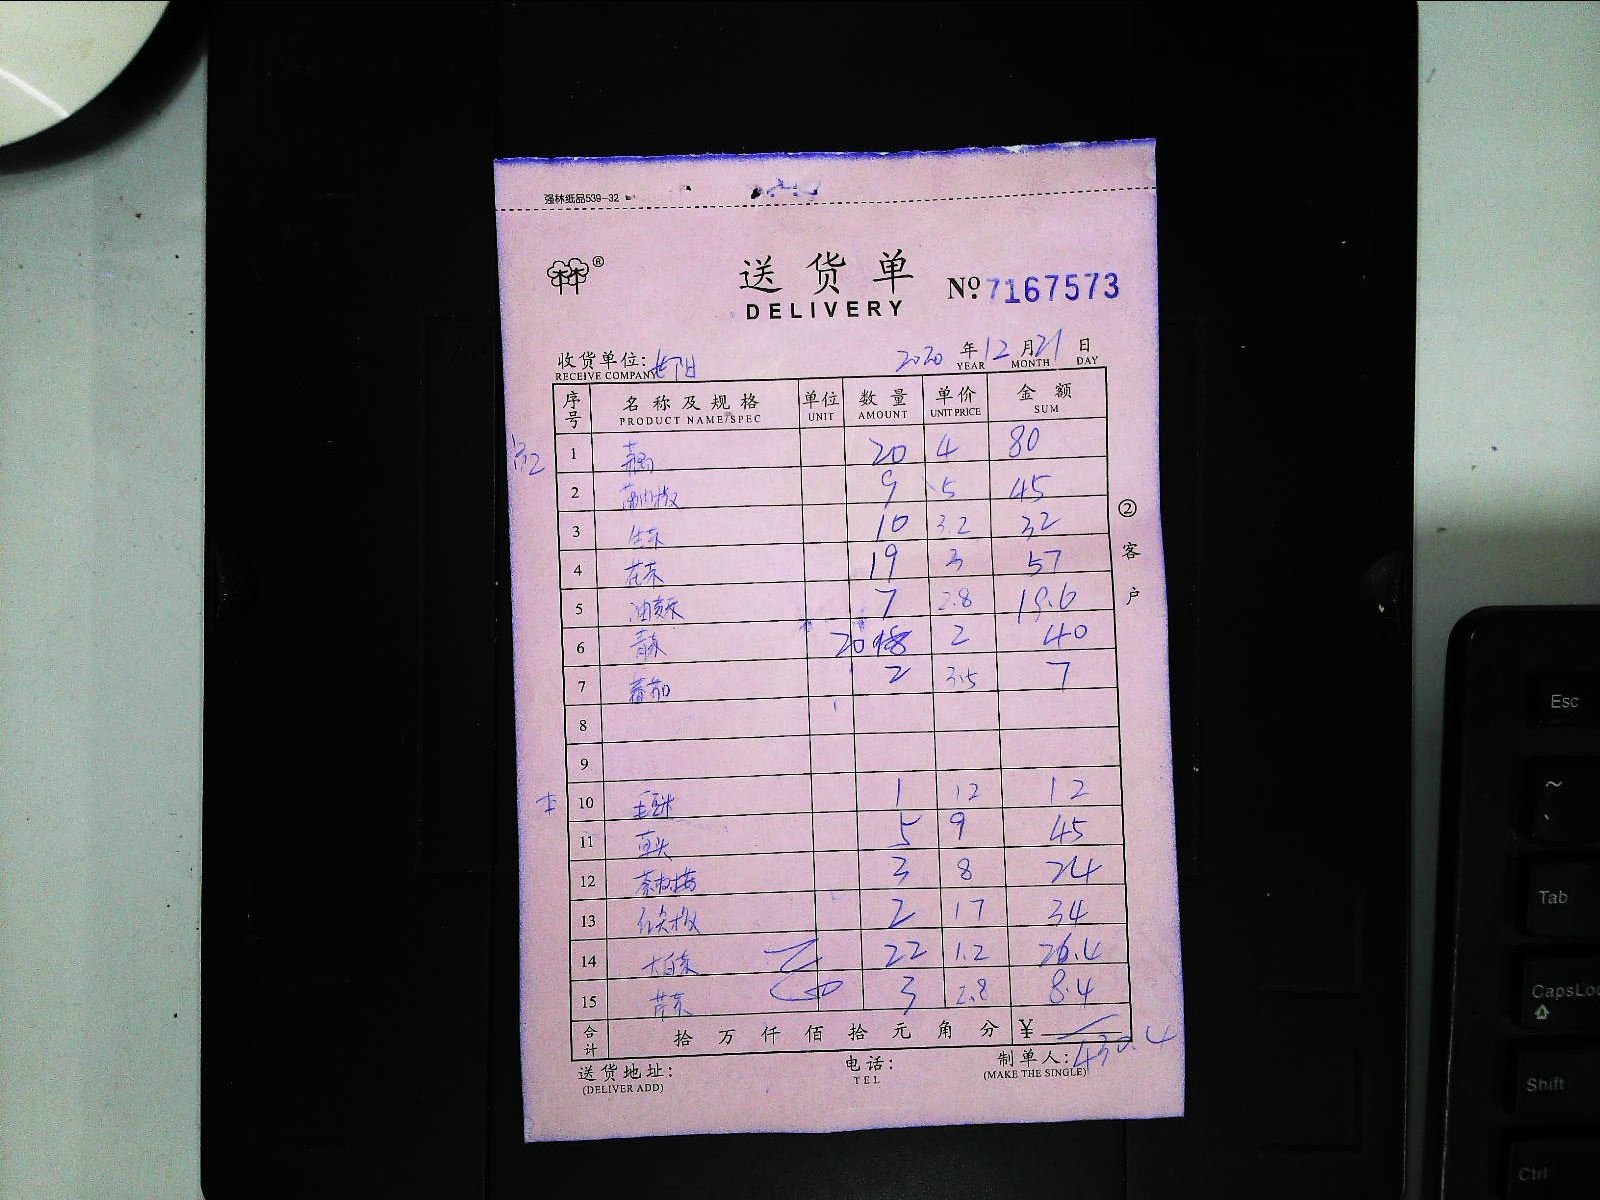 强林纸品539-32
®
送货单
DELIVERY
Nº 7167573
收货单位: 2020 年 12 月 21 日
RECEIVE COMPANY YEAR MONTH DAY
序号 名称及规格 单位 数量 单价 金额
PRODUCT NAME/SPEC UNIT AMOUNT UNIT PRICE SUM
1 20 4 80
2 9 5 45
3 生菜 10 3.2 32
4 花菜 19 3 57
5 油麦菜 7 2.8 19.6
6 青菜 20 2 40
7 蕃茄 2 3.5 7
8
9
10 1 12 12
11 5 9 45
12 茶树菇 3 8 24
13 红尖椒 2 17 34
14 大白菜 22 1.2 26.4
15 芹菜 3 2.8 8.4
合计 拾 万 仟 佰 拾 元 角 分 ¥ 430.4
送货地址: 电话: 制单人:
(DELIVER ADD) TEL (MAKE THE SINGLE)
② 客户
Esc
~
Tab
CapsLoc
Shift
Ctrl